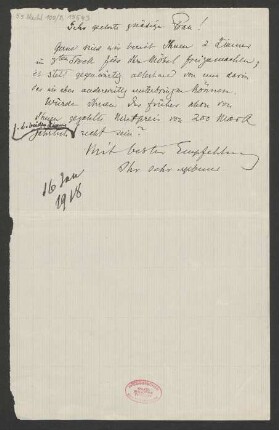 Sehr geehrte gnädige Frau!
Ganz sind wir bereit Ihnen 2 Räume
im 3ten Stock für Ihre Möbel freizumachen,
es steht gegenwärtig allerhand von uns darin
das wir aber anderweitig unterbringen können.
Würde Ihnen der früher schon von
Ihnen gezahlte Mietpreis von 200 Mark
jährlich recht sein?
Mit besten Empfehlungen
Ihr sehr ergebener
16 Jan
1918